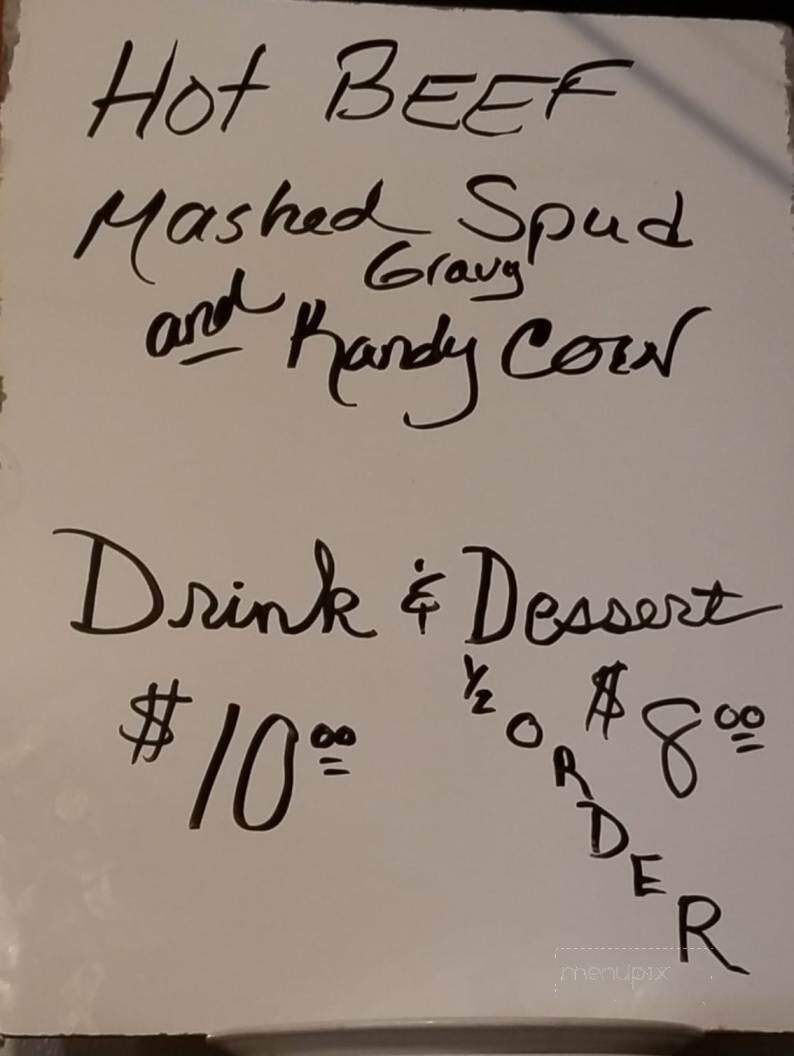 Hot BEEF
Mashed Spud
Gravy
and Kandy CORN
Drink & Dessert
$10.00
1/2 ORDER $8.00
menupix